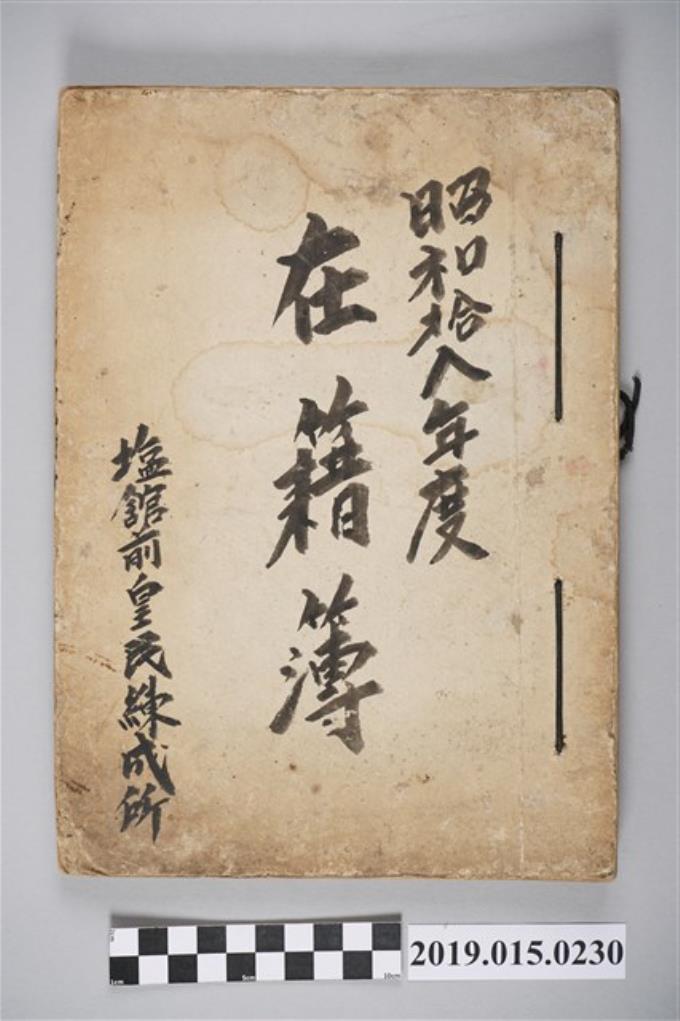 昭和拾八年度
在籍簿
塩館前皇民練成所
2019.015.0230
1cm
5cm
10cm